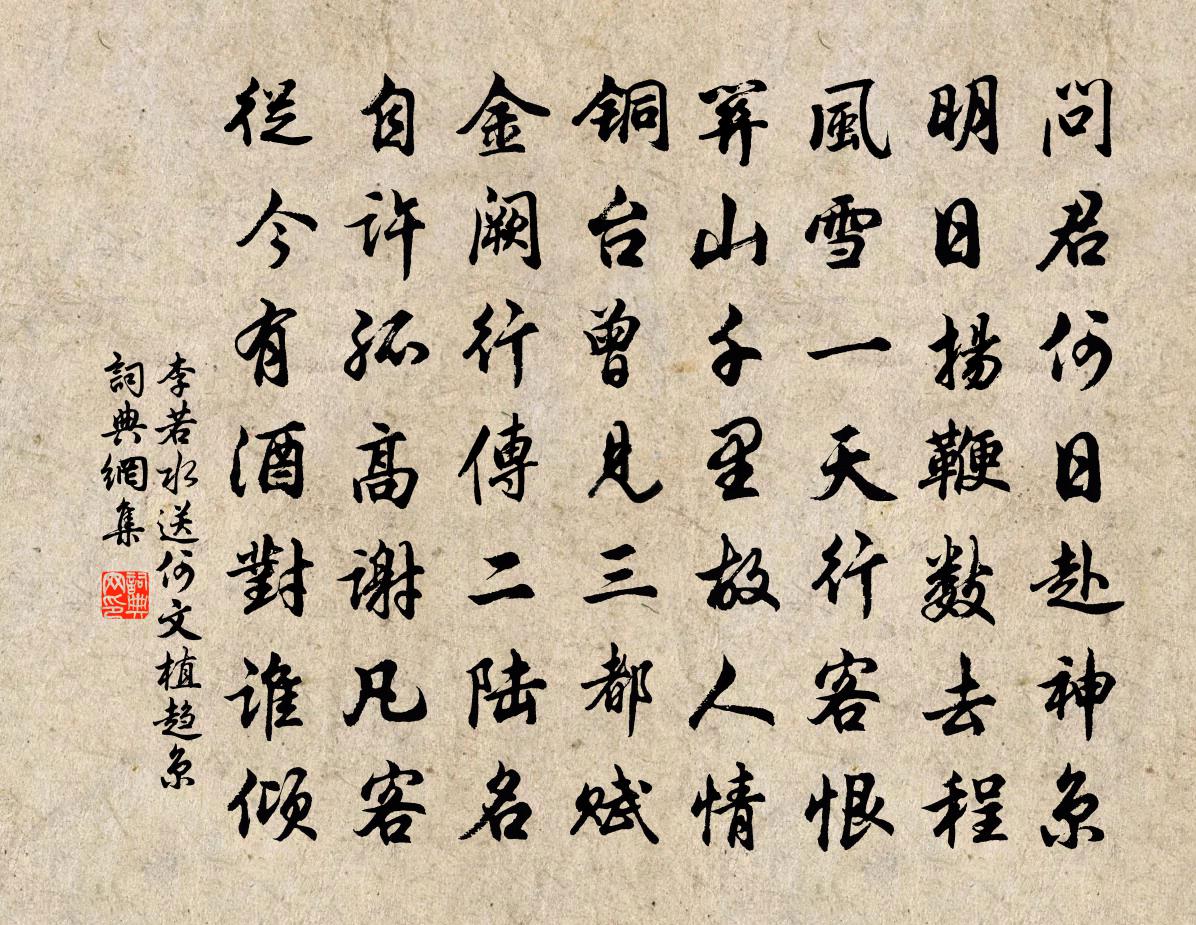 問君何日赴神京
明日揚鞭數去程
風雪一天行客恨
關山千里故人情
銅台曾見三都賦
金闕行傳二陸名
自許孤高謝凡客
從今有酒對誰傾
李若水送何文植趨京
詞典網集
詞典網印